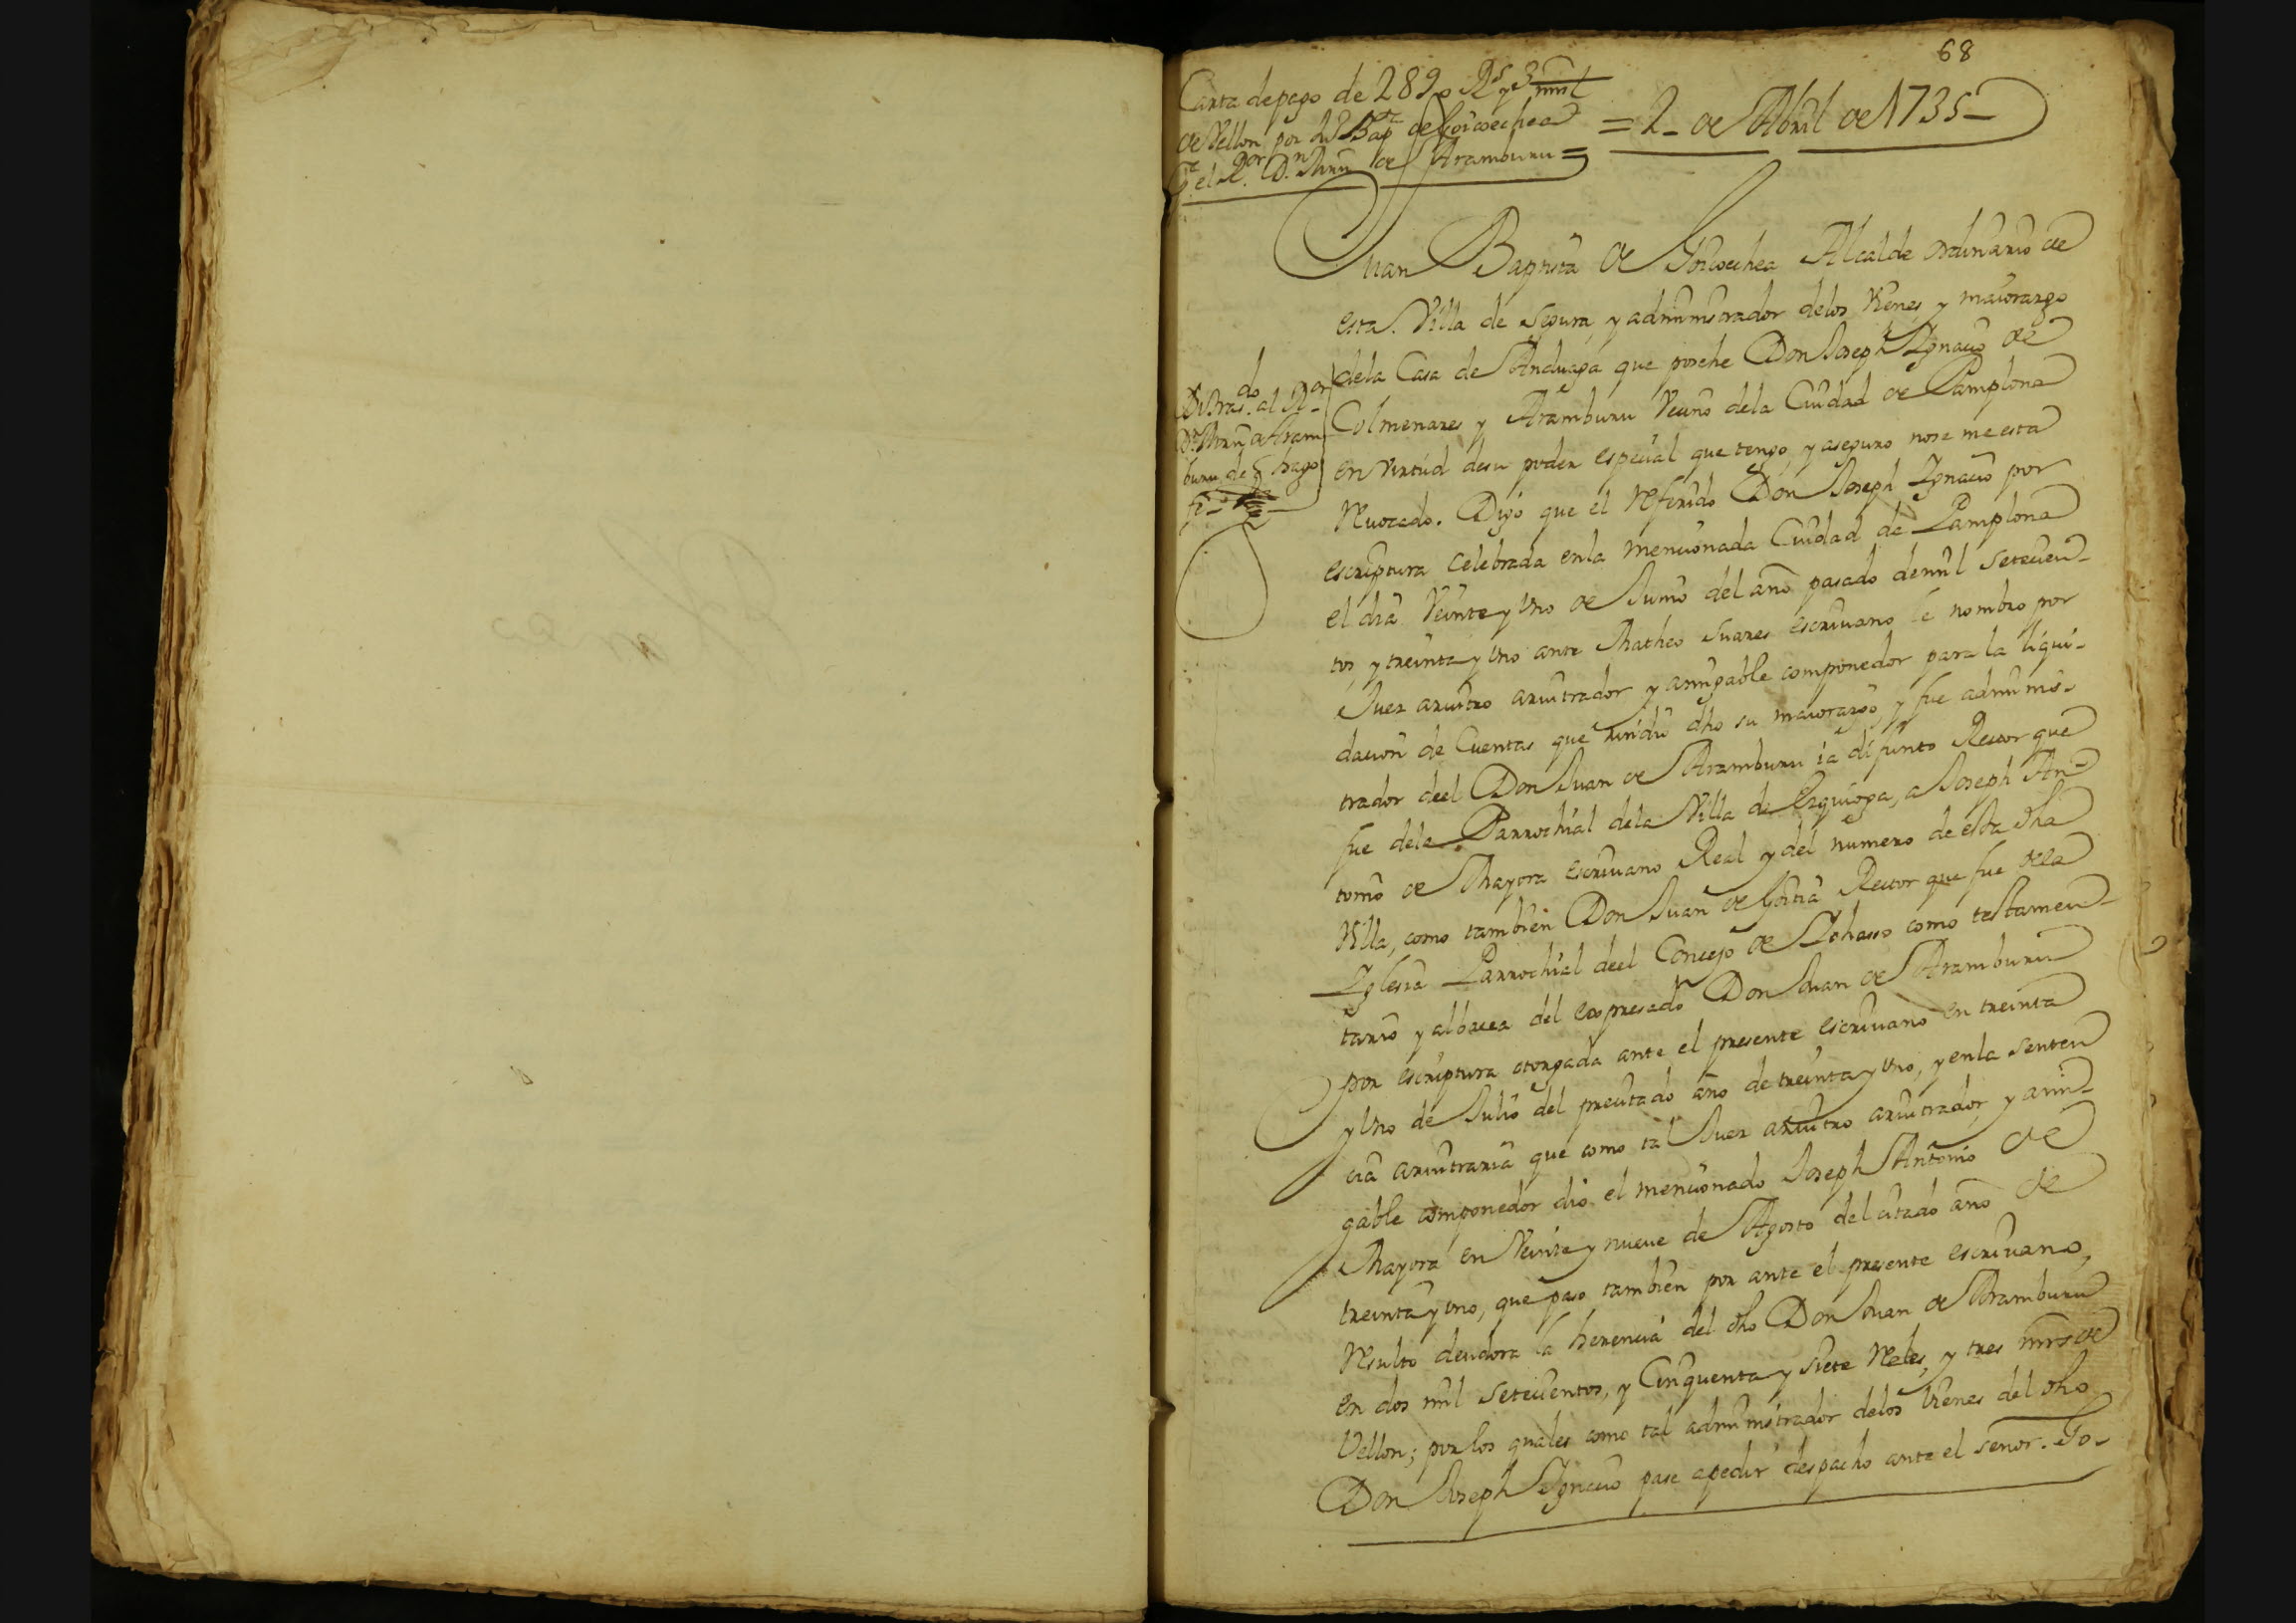 68
Carta depago de 289 Rs y 3 mrs
de Vellon por Jn Bapta de Goicoechea
el Ror Dn Mrn de Aramburu =
= 2 - de Abril de 1735 -
Juan Baptista de Goicoechea Alcalde ordinario de
esta Villa de Segura, y administrador delos Vienes y maiorazgo
dela Casa de Anduaga que poshe Don Joseph Ygnacio de
Colmenares y Aramburu Vecino dela Ciudad de Pamplona
en virtud desu poder especial que tengo, y aseguro nose me esta
Revocado. Digo que el referido Don Joseph Ygnacio por
escriptura celebrada enla mencionada Ciudad de Pamplona
el dia Veinte y Uno de Junio del año pasado demil setecien-
tos, y treinta y Uno ante Matheo Suares escrivano le nombro por
Juez arvitro arvitrador y amigable componedor para la liqui-
dacion de Cuentas que rindio dho su maiorazgo, y fue adminis-
trador deel Don Juan de Aramburu ia difunto Rector que
fue dela Parrochial dela Villa de Ezquioga, a Joseph An-
tonio de Mayora escrivano Real y del numero de esta dha
Villa, como tambien Don Juan de Goitia Rector que fue dela
Yglesia Parrochial deel Concejo de Ychasso como testamen-
tario y albacea del expresado Don Juan de Aramburu
por escriptura otorgada ante el presente escrivano en treinta
y Uno de Julio del precitado año de treinta y Uno, y enla senten
cia arvitraria que como tal Juez arvitro arvitrador, y ami-
gable componedor dio el mencionado Joseph Antonio de
Mayora en Veinte y nueve de Agosto del citado año de
treinta y Uno, que paso tambien por ante el presente escrivano,
Resulto deudora la herencia del dho Don Juan de Aramburu
en dos mil setecientos, y Cinquenta y siete Reles, y tres mrs de
Vellon; por los quales como tal administrador delos vienes del dho
Don Joseph Ygnacio pase apedir despacho ante el señor. Go-
do
al Ror
Dn Mrn de Aram
buru de q hago
fe -